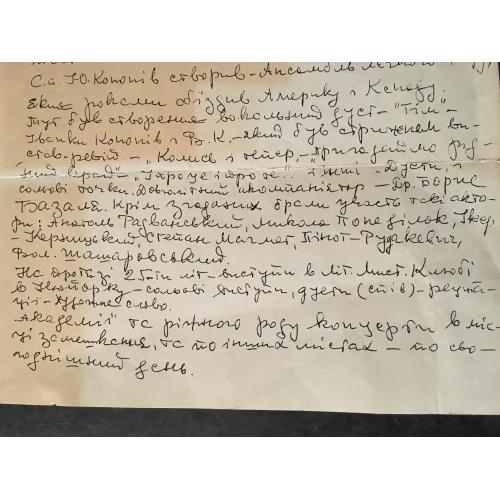 С.й Ю. Кононів створив - Ансамбль
який роками об'їздив Америку і Канаду;
тут був створений вокальний дует - "Тім-
Іванки Кононів і В.К. - який був стрижнем ви-
став-ревій - "Колись і тепер, - "Пригадаймо рід-
ний край" - і інші. Дуети, і
сольові точки. Довголітній акомпаніятор - Др. Борис
Базаля. Крім згаданих брали участь такі акто-
ри: Анатоль Радванський, Микола Понеділок, Ікер-
- Керницький, Степан
Вол. Шашаровський.
На протязі 25-ти літ - виступи в Літ. Мист. Клюбі
в Нюйорку - сольові виступи, дуети (спів) - рециту-
ції - художнє слово.
"Академії" та ріжного роду концерти в міс-
ці замешкання, та по інших містах - по сьо-
годнішний день.